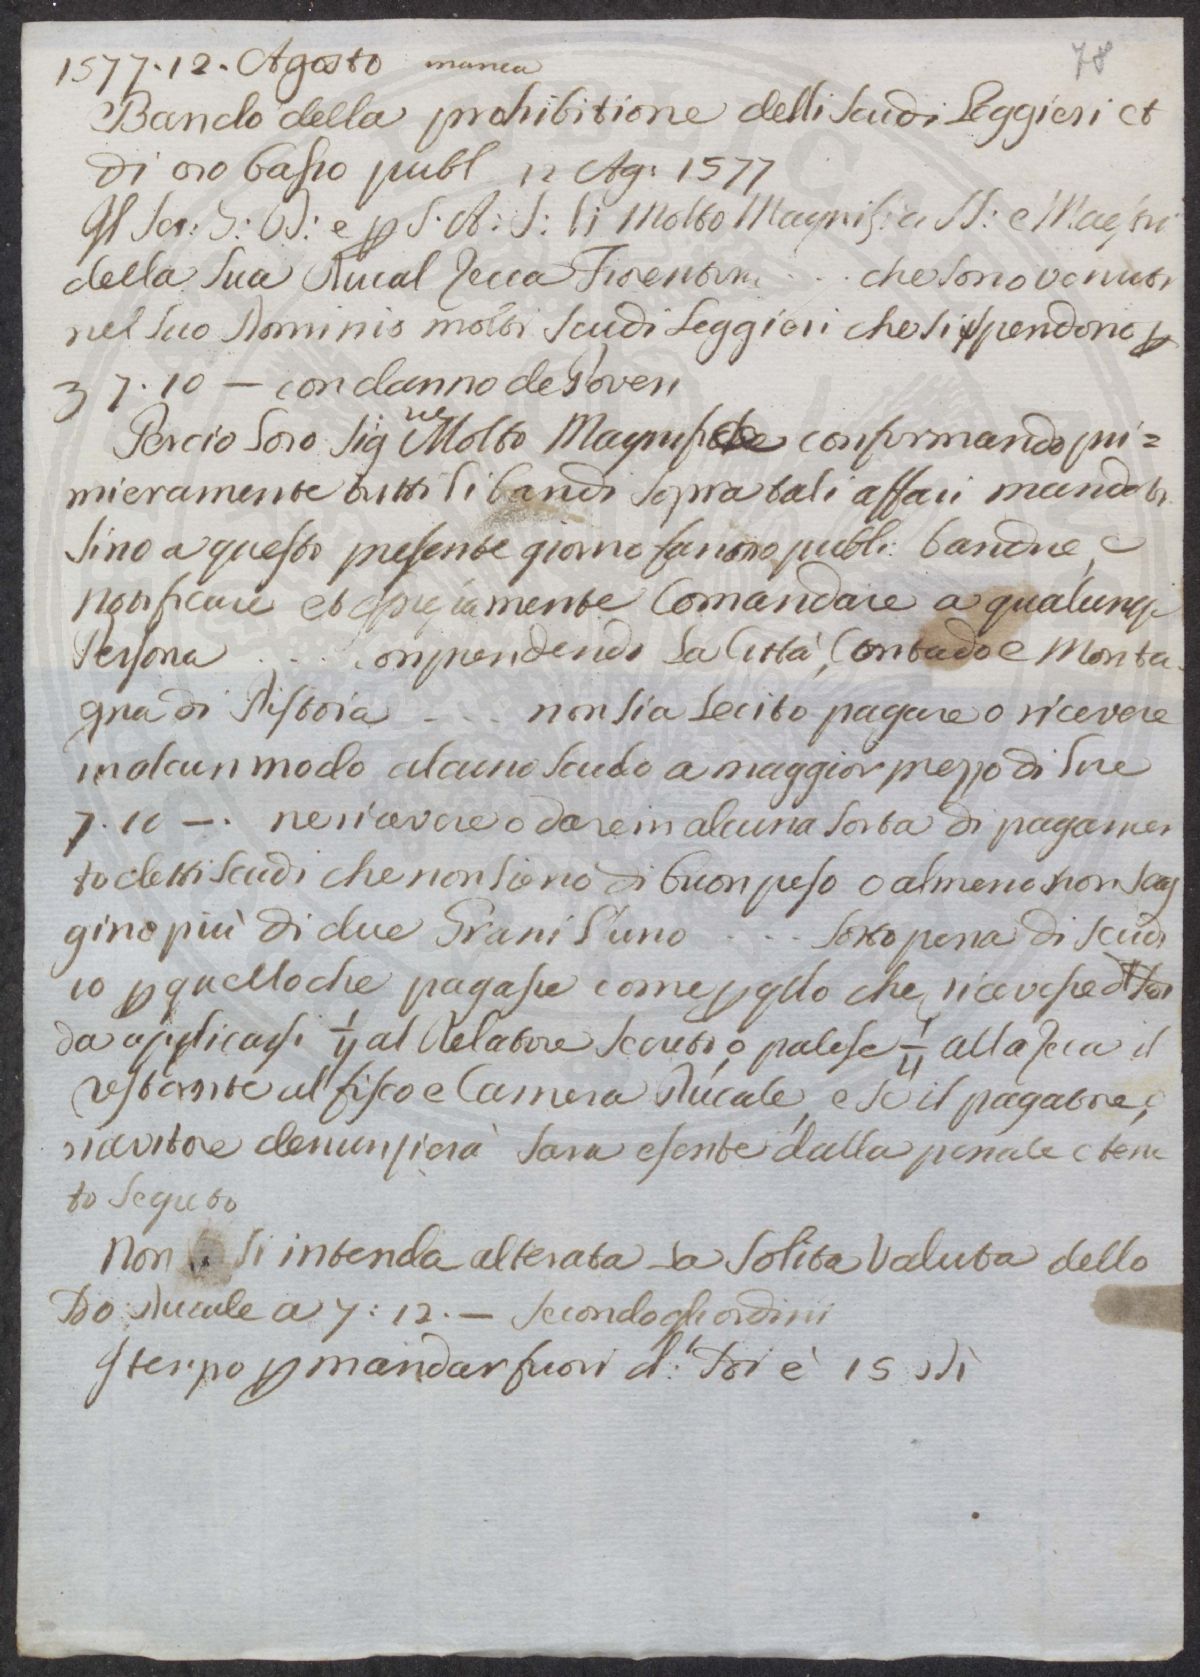 78
1577. 12. Agosto manca
Bando della prohibitione delli scudi Leggieri et
di oro basso publ 12 Ag: 1577
Il Ser: G: D: e p S. A: S: li Molto Magnifici SS: e Maestri
della sua Ducal Zecca Fiorentina ... che sono venuti
nel suo Dominio molti scudi Leggieri che si spendono p
7. 10 — con danno de Poveri
Percio loro Sig. rie Molto Magnifiche confirmando pri=
mieramente tutti li bandi sopra tali affari mandati
sino a questo presente giorno fanno publi: bandire, e
notificare et espressamente Comandare a qualunq
Persona .... comprendendo la Città, Contado e Monta
gna di Pistoia .... non sia Lecito pagare o ricevere
in alcun modo alcuno scudo a maggior prezzo di lire
7. 10 —. ne ricevere o dare in alcuna sorta di pagamen
to detti scudi che non sieno di buon peso o almeno non leg
gino più di due Grani l'uno .... sotto pena di scudi
10 p quello che pagasse come p qllo che ricevesse
da applicarsi 1/4 al Relatore secreto, o palese 1/4 alla Zecca il
restante al fisco e Camera Ducale, e se il pagatore, o
ricevitore denunzierà sara esente dalla penale e tenu
to segreto
Non si intenda alterata la solita Valuta dello
Do: Ducale a 7: 12. — secondo gli ordini
Il tempo p mandar fuori d.i è 15 dì